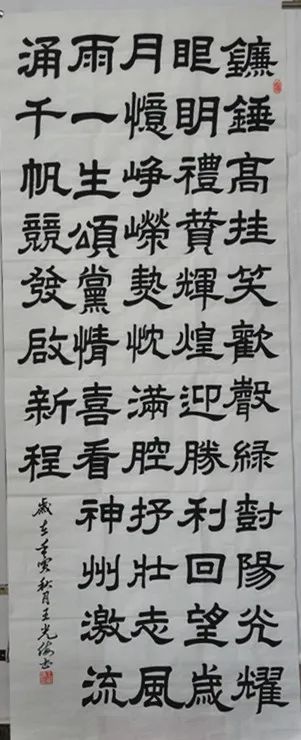 鐮錘高挂笑歡聲綠樹陽光耀
眼明禮贊輝煌迎勝利回望歲
月憶崢嶸熱忱滿腔抒壯志風
雨一生頌黨情喜看神州激流
涌千帆競發啟新程
歲在壬寅秋月王光書